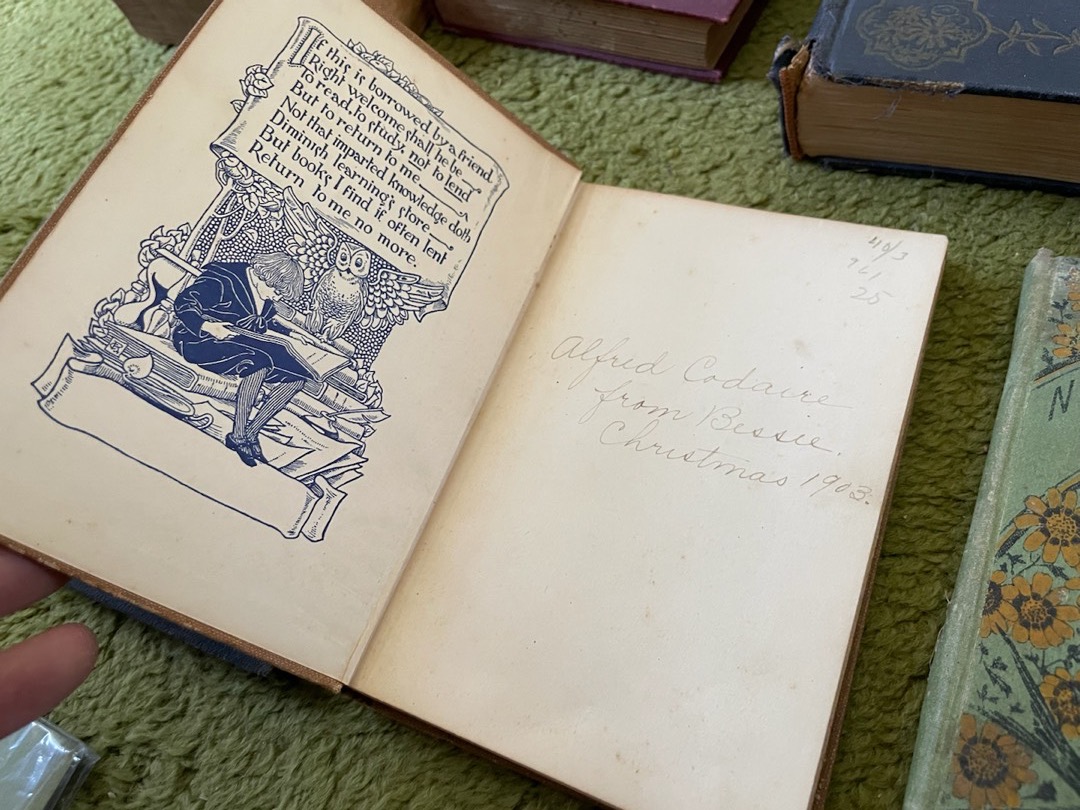 If this is borrowed by a friend
Right welcome shall he be
To read, to study, not to lend
But to return to me.
Not that imparted knowledge doth
Diminish learning's store
But books I find if often lent
Return to me no more.
Alfred Codaire
from Bessie.
Christmas 1903.
25
N